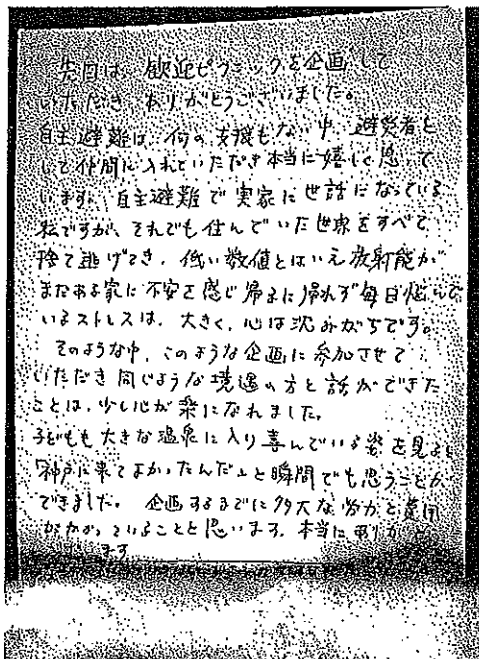 先日は、歓迎ピクニックを企画して
いただき ありがとうございました。
自主避難は、何の支援もない中、避難者と
して仲間に入れていただき本当に嬉しく思って
います。自主避難で実家に世話になっている
私ですが、それでも住んでいた世界をすべて
捨て逃げてき、低い数値とはいえ放射能が
まだある家に不安を感じ帰るに帰れず毎日悩んで
いるストレスは、大きく、心は沈みがちです。
そのような中、このような企画に参加させて
いただき同じような境遇の方と話ができた
ことは、少し心が楽になれました。
子どもも大きな温泉に入り喜んでいる姿を見ると
「神戸に来てよかったんだ」と瞬間でも思うことが
できました。企画するまでに多大な労力と費用
がかかっていることと思います。本当に ありがとう
ます